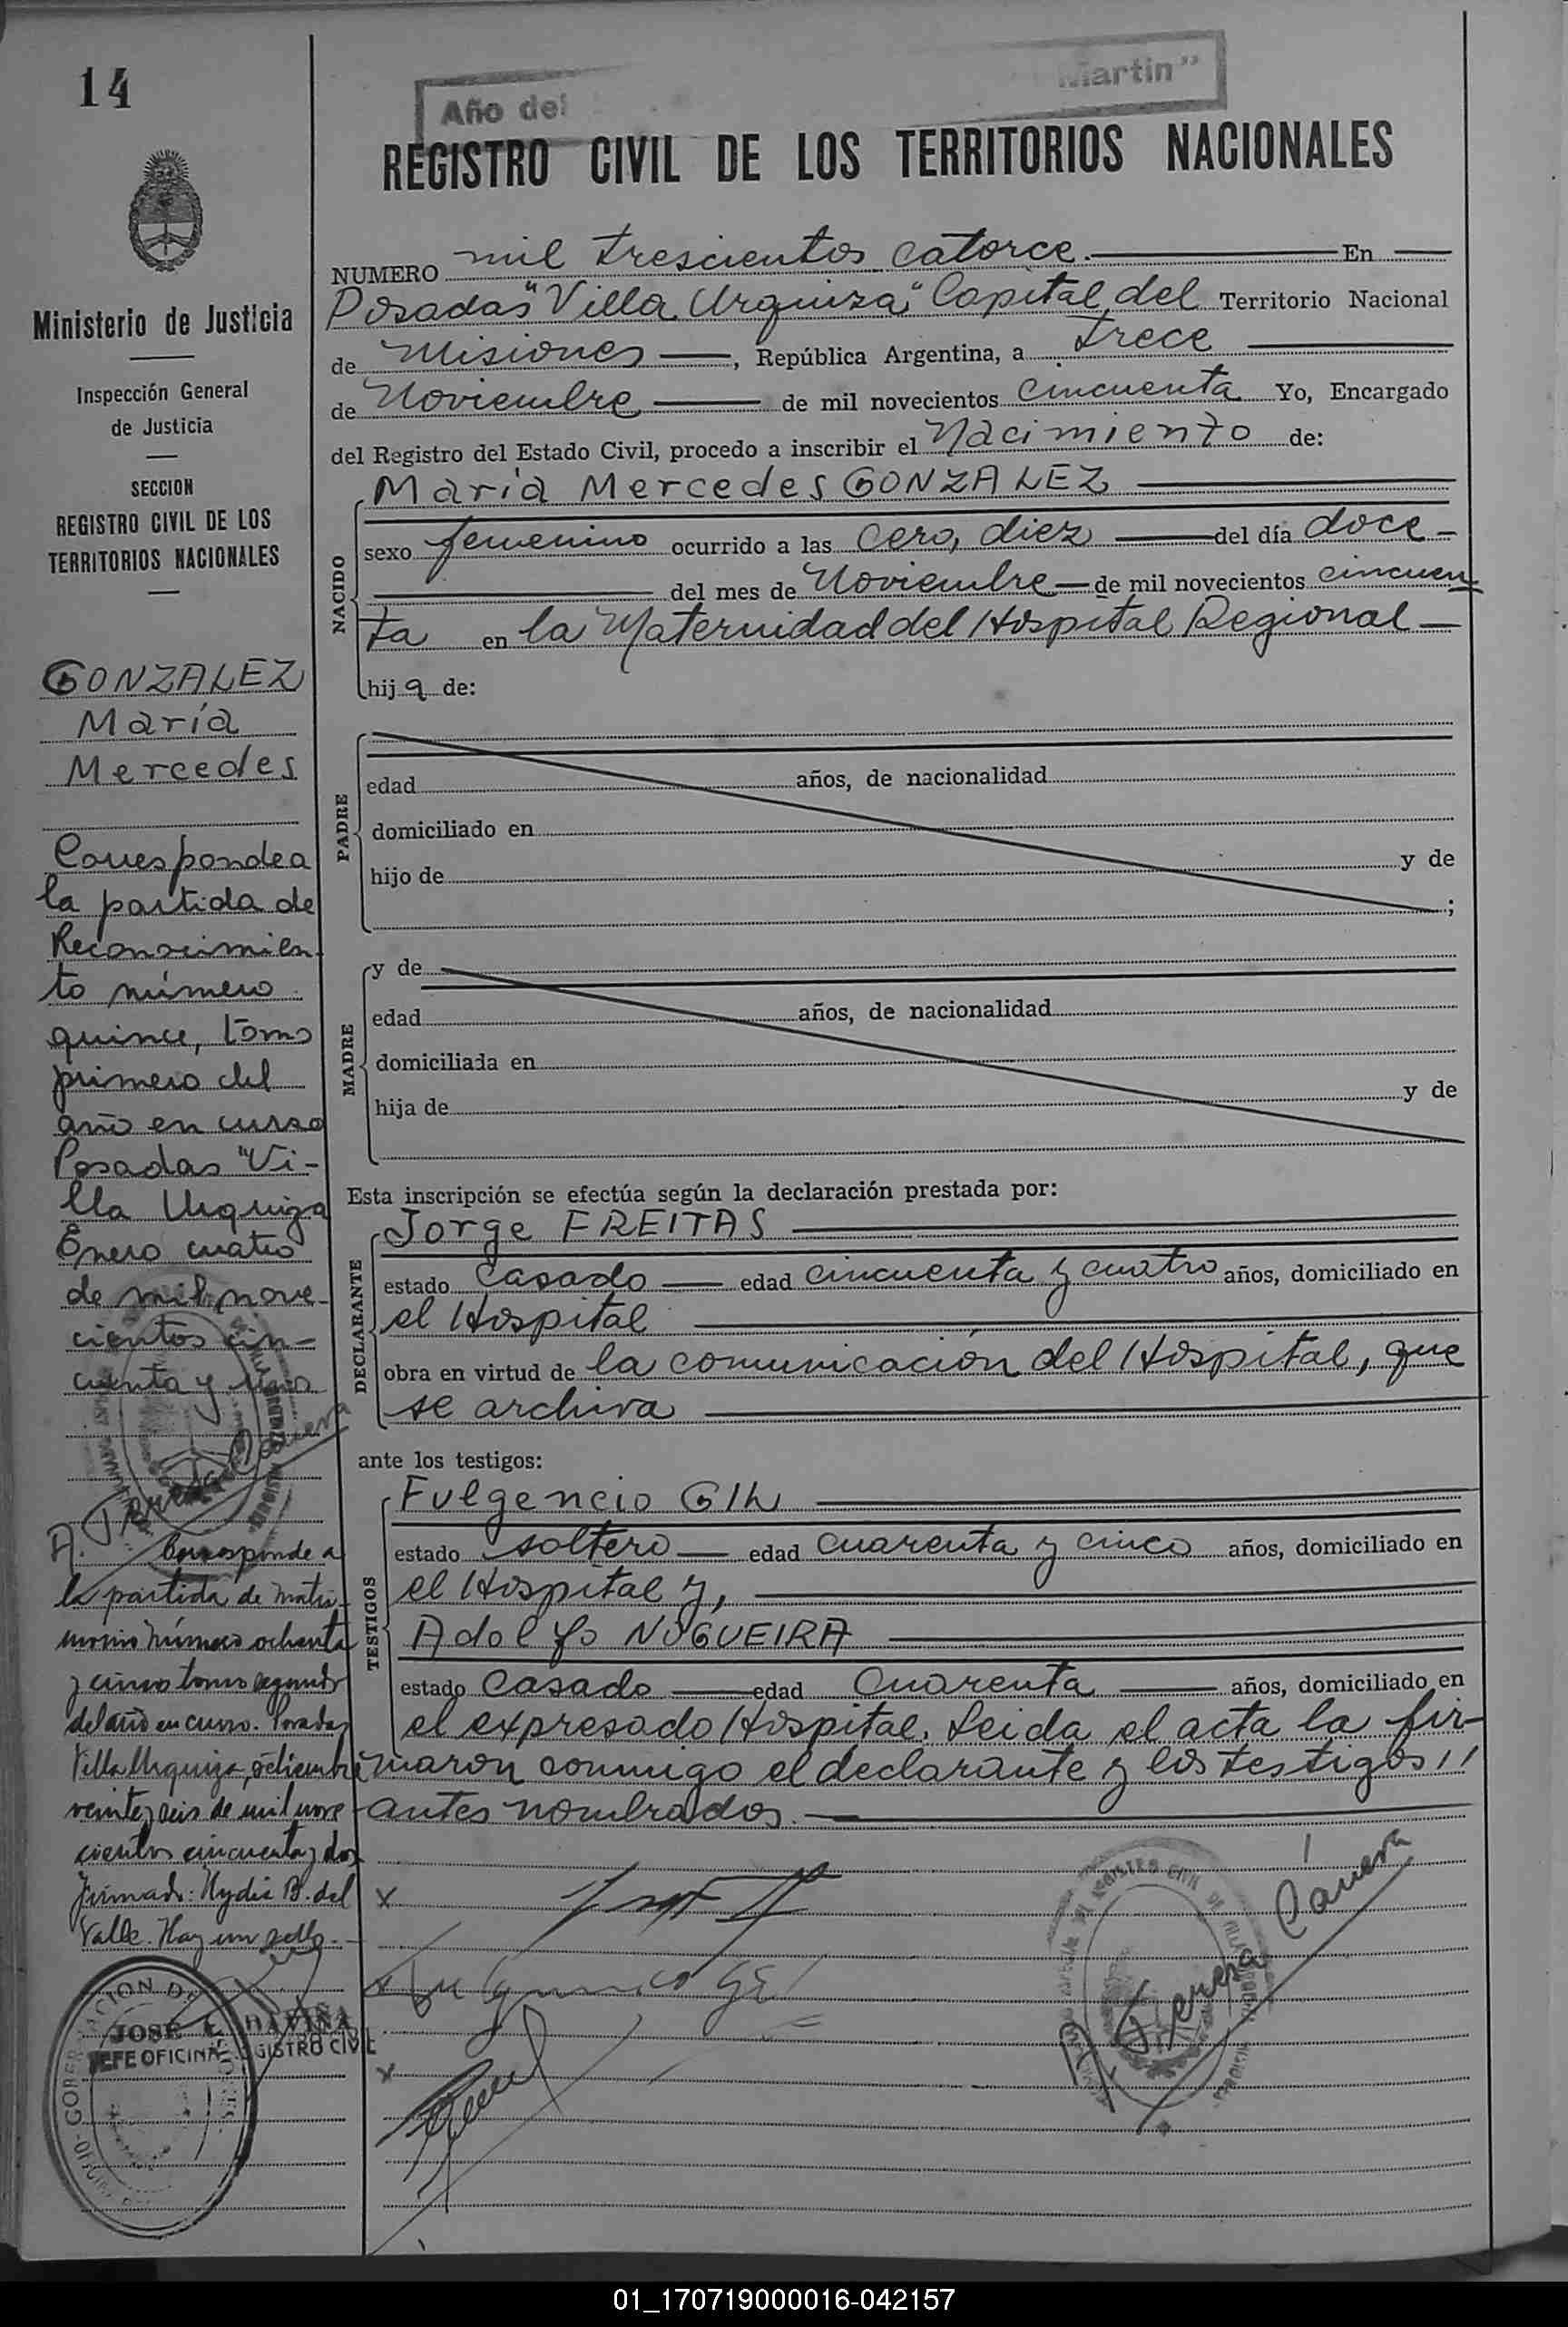 14
Año del Martin"
REGISTRO CIVIL DE LOS TERRITORIOS NACIONALES
Ministerio de Justicia
Inspección General
de Justicia
SECCION
REGISTRO CIVIL DE LOS
TERRITORIOS NACIONALES
GONZALEZ
María
Mercedes
Corresponde a
la partida de
Reconocimien-
to número
quince, tomo
primero del
año en curso
Posadas "Vi-
lla Urquiza
Enero cuatro
de mil nove-
cientos cin-
cuenta y uno
A. Teresa Cánera
Corresponde a
la partida de matri-
monio número ochenta
y cinco tomo segundo
del año en curso. Posadas
Villa Urquiza, diciembre
veinte y seis de mil nove
cientos cincuenta y dos
Firmado: Nydia B. del
Valle. Hay un sello.-
GOBERNACION DE
JOSE
JEFE OFICINA REGISTRO CIVIL
NUMERO mil trescientos catorce. En
Posadas "Villa Urquiza" Capital del Territorio Nacional
de Misiones, República Argentina, a trece
de Noviembre de mil novecientos cincuenta Yo, Encargado
del Registro del Estado Civil, procedo a inscribir el Nacimiento de:
NACIDO
María Mercedes GONZALEZ
sexo femenino ocurrido a las cero, diez del día doce
del mes de Noviembre de mil novecientos cincuen
ta en la Maternidad del Hospital Regional
hija de:
PADRE
edad años, de nacionalidad
domiciliado en
hijo de y de
;
MADRE
y de
edad años, de nacionalidad
domiciliada en
hija de y de
Esta inscripción se efectúa según la declaración prestada por:
DECLARANTE
Jorge FREITAS
estado casado edad cincuenta y cuatro años, domiciliado en
el Hospital
obra en virtud de la comunicación del Hospital, que
se archiva
ante los testigos:
TESTIGOS
Fulgencio GIL
estado soltero edad cuarenta y cinco años, domiciliado en
el Hospital y,
Adolfo NOGUEIRA
estado casado edad cuarenta años, domiciliado en
el expresado Hospital. Leida el acta la fir-
maron conmigo el declarante y los testigos,,
antes nombrados.
x
x Fulgencio Gil
x
A. Teresa Cánera
01_170719000016-042157